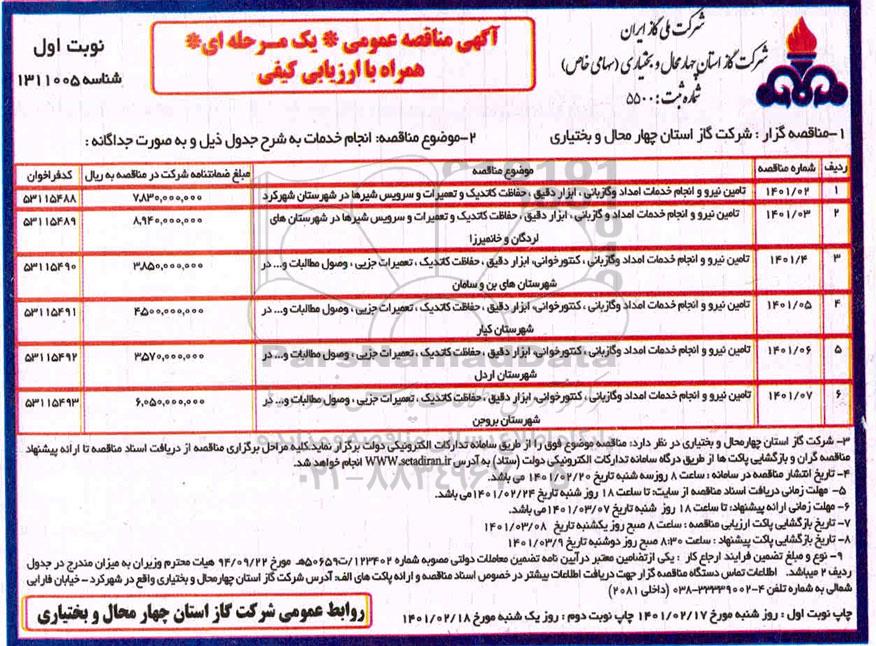 شرکت ملی گاز ایران
شرکت گاز استان چهارمحال و بختیاری (سهامی خاص)
شماره ثبت : ۵۵۰۰
آگهی مناقصه عمومی * یک مرحله ای*
همراه با ارزیابی کیفی
نوبت اول
شناسه ۱۳۱۱۰۰۵
۱-مناقصه گزار : شرکت گاز استان چهار محال و بختیاری ۲-موضوع مناقصه: انجام خدمات به شرح جدول ذیل و به صورت جداگانه :
ردیف شماره مناقصه موضوع مناقصه مبلغ ضمانتنامه شرکت در مناقصه به ریال کدفراخوان
۱ ۱۴۰۱/۰۲ تامین نیرو و انجام خدمات امداد وگازبانی ، ابزار دقیق ، حفاظت کاتدیک و تعمیرات و سرویس شیرها در شهرستان شهرکرد ۷,۸۳۰,۰۰۰,۰۰۰ ۵۳۱۱۵۴۸۸
۲ ۱۴۰۱/۰۳ تامین نیرو و انجام خدمات امداد و گازبانی ، ابزار دقیق ، حفاظت کاتدیک و تعمیرات و سرویس شیرها در شهرستان های ۸,۹۴۰,۰۰۰,۰۰۰ ۵۳۱۱۵۴۸۹
لردگان و خانمیرزا
۳ ۱۴۰۱/۴ تامین نیرو و انجام خدمات امداد وگازبانی ، کنتورخوانی، ابزار دقیق ، حفاظت کاتدیک ، تعمیرات جزیی ، وصول مطالبات و... در ۳,۸۵۰,۰۰۰,۰۰۰ ۵۳۱۱۵۴۹۰
شهرستان های بن و سامان
۴ ۱۴۰۱/۰۵ تامین نیرو و انجام خدمات امداد وگازبانی ، کنتورخوانی، ابزار دقیق ، حفاظت کاتدیک ، تعمیرات جزیی ، وصول مطالبات و... در ۴,۵۰۰,۰۰۰,۰۰۰ ۵۳۱۱۵۴۹۱
شهرستان کیار
۵ ۱۴۰۱/۰۶ تامین نیرو و انجام خدمات امداد وگازبانی ، کنتورخوانی، ابزار دقیق ، حفاظت کاتدیک ، تعمیرات جزیی ، وصول مطالبات و... در ۳,۵۷۰,۰۰۰,۰۰۰ ۵۳۱۱۵۴۹۲
شهرستان اردل
۶ ۱۴۰۱/۰۷ تامین نیرو و انجام خدمات امداد وگازبانی ، کنتورخوانی، ابزار دقیق ، حفاظت کاتدیک ، تعمیرات جزیی ، وصول مطالبات و... در ۶,۰۵۰,۰۰۰,۰۰۰ ۵۳۱۱۵۴۹۳
شهرستان بروجن
۳- شرکت گاز استان چهارمحال و بختیاری در نظر دارد: مناقصه موضوع فوق را از طریق سامانه تدارکات الکترونیکی دولت برگزار نماید.کلیه مراحل برگزاری مناقصه از دریافت اسناد مناقصه تا ارائه پیشنهاد
مناقصه گران و بازگشایی پاکت ها از طریق درگاه سامانه تدارکات الکترونیکی دولت (ستاد) به آدرس WWW.setadiran.ir انجام خواهد شد.
۴- تاریخ انتشار مناقصه در سامانه : ساعت ۸ روزسه شنبه تاریخ ۱۴۰۱/۰۲/۲۰ می باشد.
۵- مهلت زمانی دریافت اسناد مناقصه از سایت: تا ساعت ۱۸ روز شنبه تاریخ ۱۴۰۱/۰۲/۲۴می باشد.
۶- مهلت زمانی ارائه پیشنهاد: تا ساعت ۱۸ روز شنبه تاریخ ۱۴۰۱/۰۳/۰۷می باشد.
۷- تاریخ بازگشایی پاکت ارزیابی مناقصه : ساعت ۸ صبح روز یکشنبه تاریخ ۱۴۰۱/۰۳/۰۸
۸- تاریخ بازگشایی پاکت پیشنهاد : ساعت ۸:۳۰ صبح روز دوشنبه تاریخ ۱۴۰۱/۰۳/۹
۹- نوع و مبلغ تضمین فرایند ارجاع کار : یکی ازتضامین معتبر درآیین نامه تضمین معاملات دولتی مصوبه شماره ۱۲۳۴۰۲/ت۵۰۶۵۹هـ مورخ ۹۴/۰۹/۲۲ هیات محترم وزیران به میزان مندرج در جدول
ردیف ۲ میباشد. اطلاعات تماس دستگاه مناقصه گزار جهت دریافت اطلاعات بیشتر در خصوص اسناد مناقصه و ارائه پاکت های الف: آدرس شرکت گاز استان چهارمحال و بختیاری واقع در شهرکرد - خیابان فارابی
شمالی به شماره تلفن ۴-۳۳۳۳۹۰۰۲-۰۳۸ (داخلی ۲۰۸۱)
چاپ نوبت اول : روز شنبه مورخ ۱۴۰۱/۰۲/۱۷ چاپ نوبت دوم : روز یک شنبه مورخ ۱۴۰۱/۰۲/۱۸
روابط عمومی شرکت گاز استان چهار محال و بختیاری
ParsNamadData
۰۲۱-۸۸۳۴۹۶۷۰